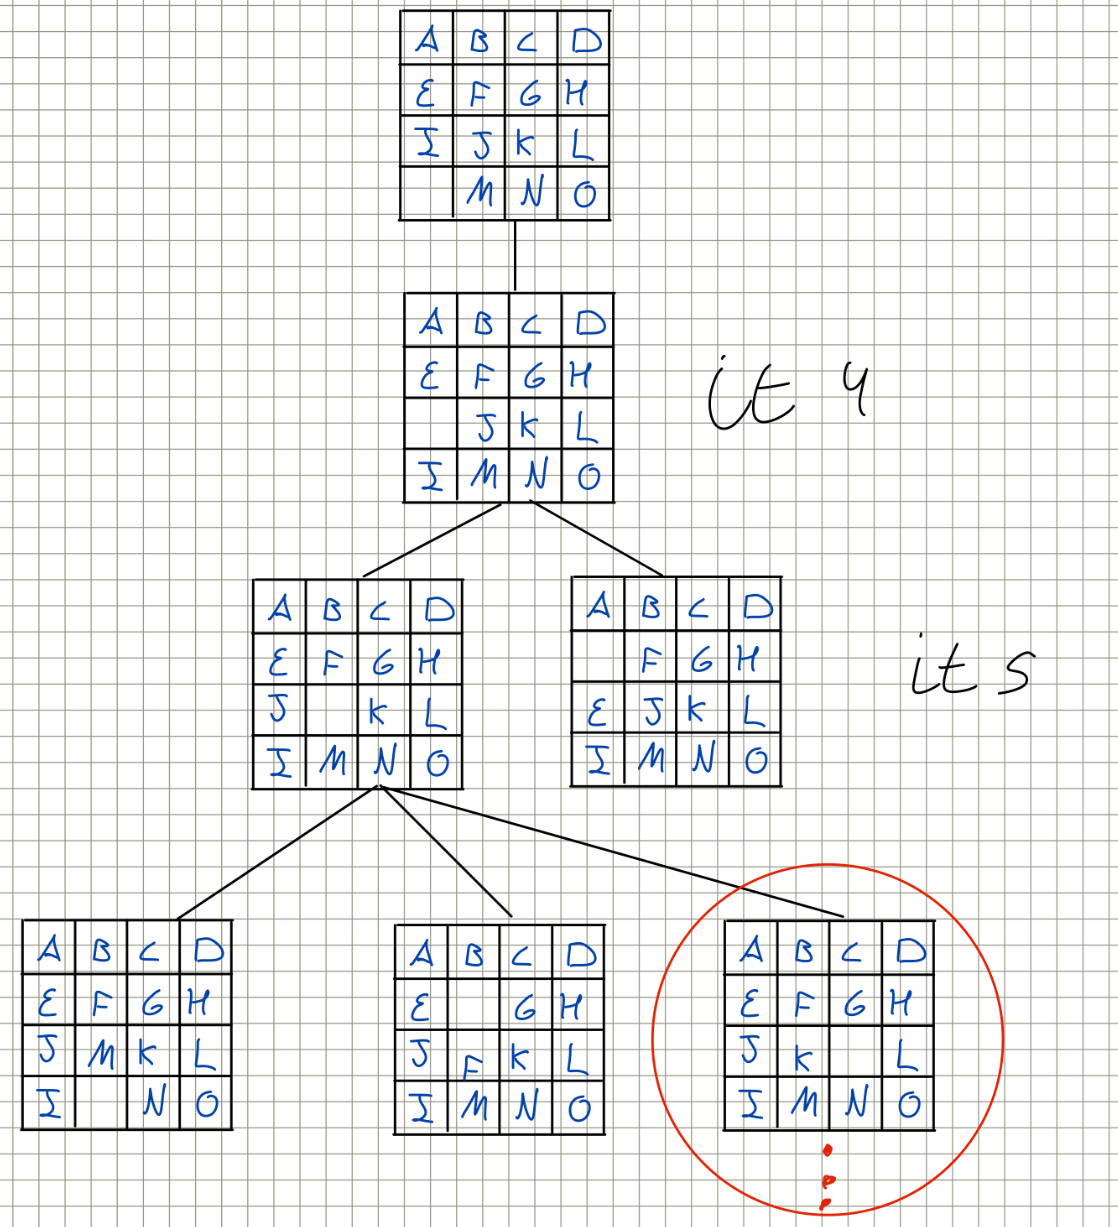 A B C D
E F G H
I J K L
M N O
A B C D
E F G H
J K L
I M N O
it 4
A B C D
E F G H
J K L
I M N O
A B C D
F G H
E J K L
I M N O
it 5
A B C D
E F G H
J M K L
I N O
A B C D
E G H
J F K L
I M N O
A B C D
E F G H
J K L
I M N O